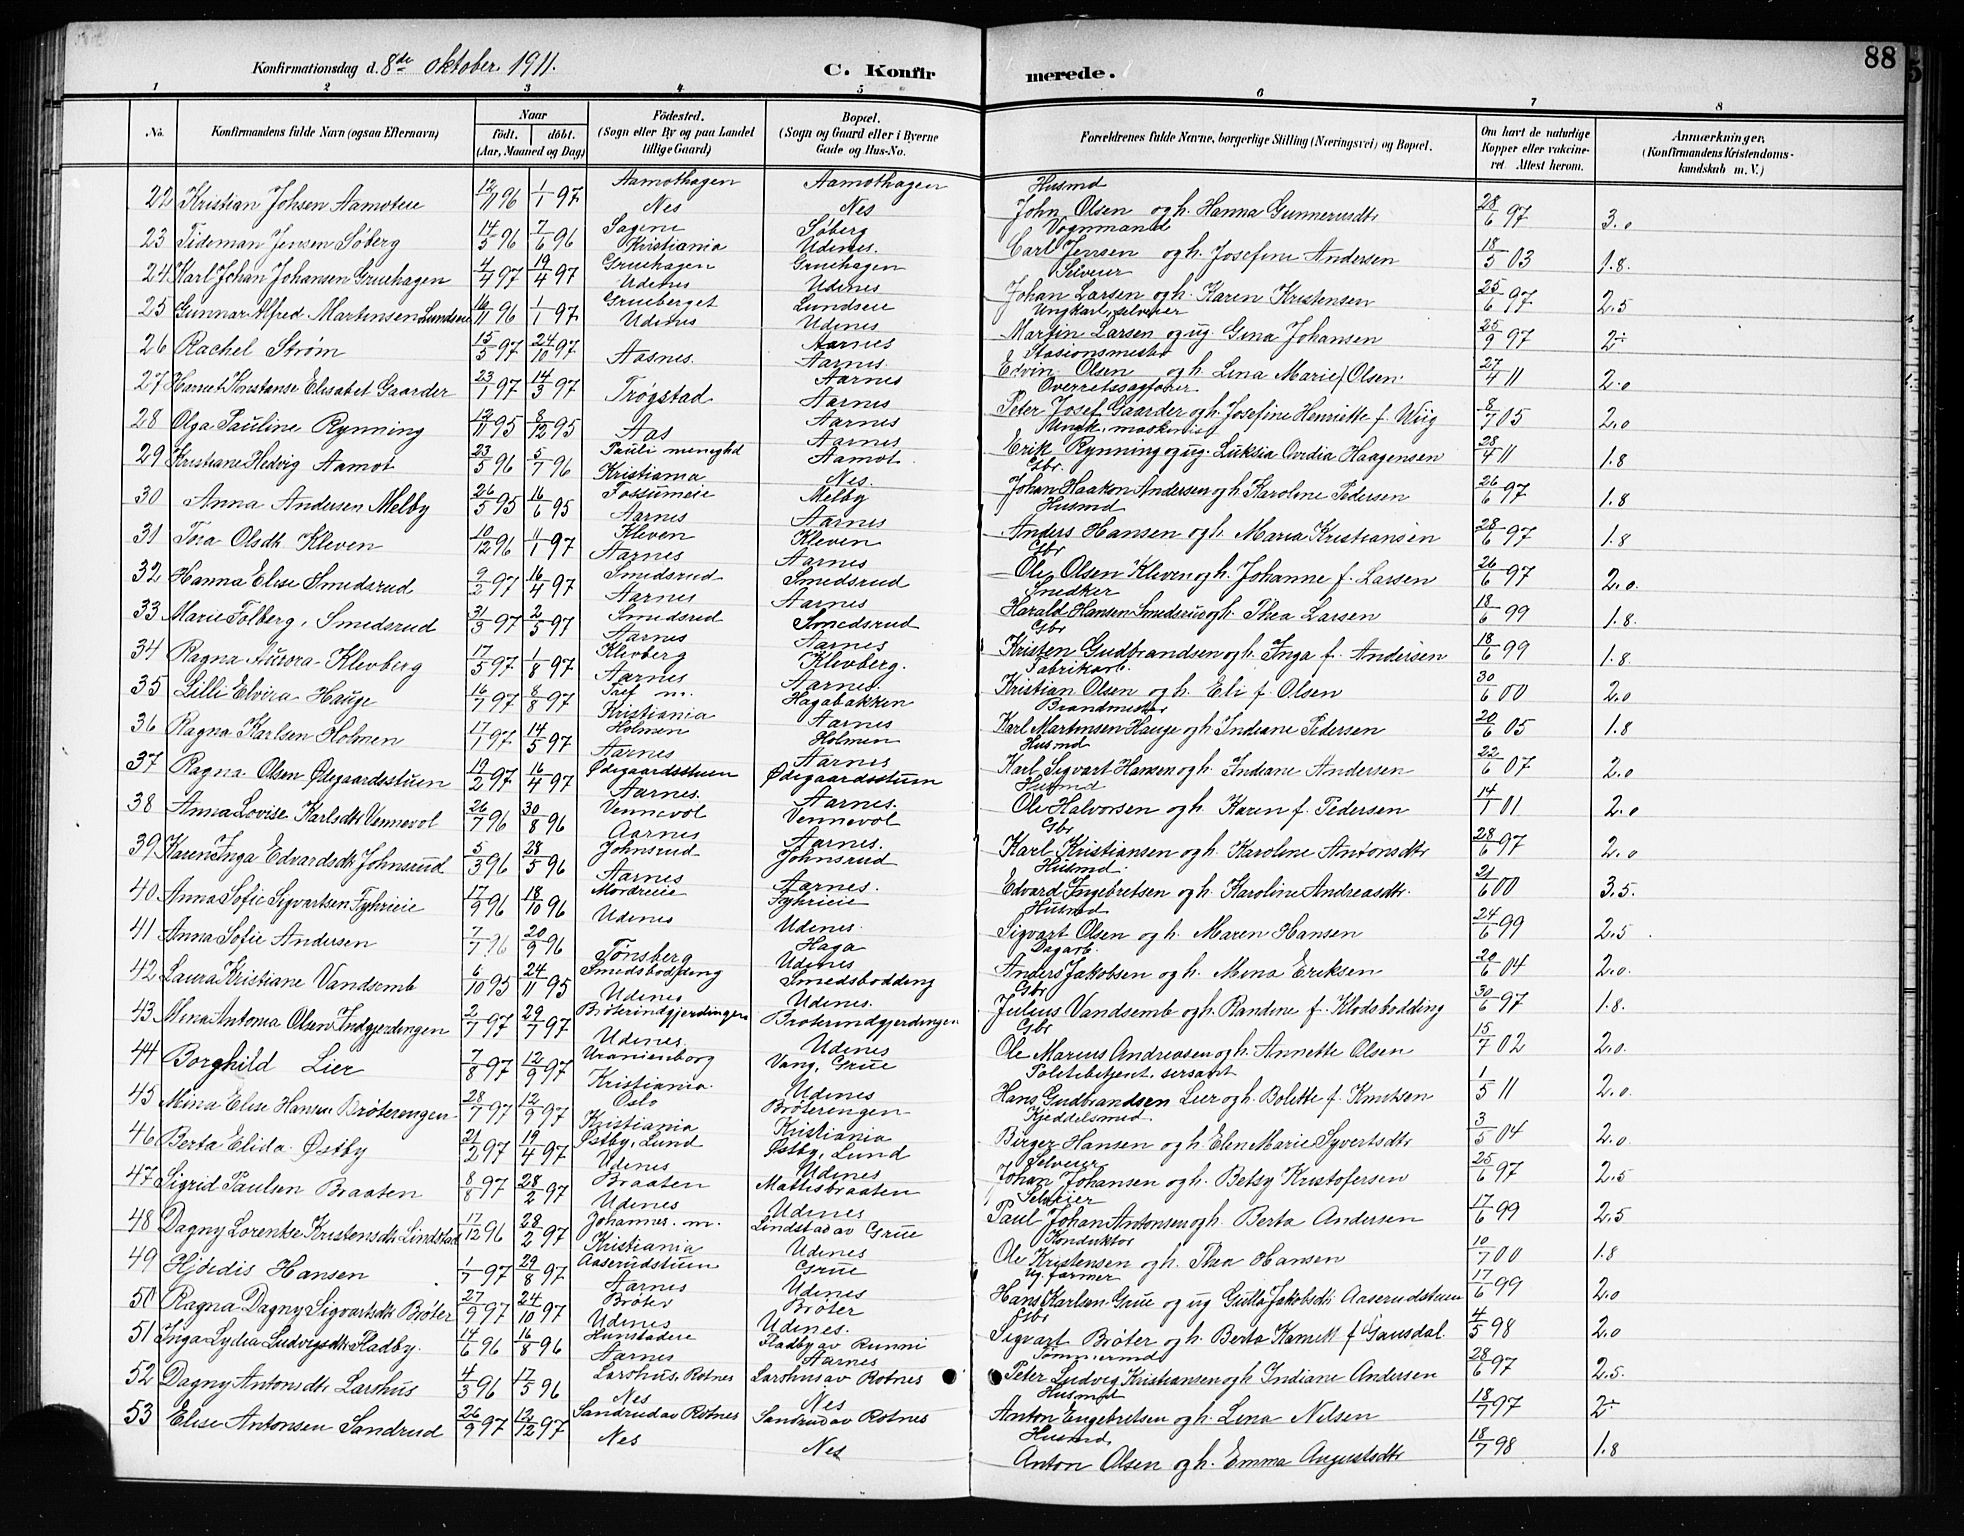 88
Konfirmationsdag d. 8de oktober 1911.
C. Konfirmerede.
1 2 3 4 5 6 7 8
No.
Konfirmandens fulde Navn (ogsaa Efternavn)
Naar
födt. döbt.
(Aar, Maaned og Dag)
Födested.
(Sogn eller By og paa Landet tillige Gaard)
Bopæl.
(Sogn og Gaard eller i Byerne Gade og Hus-No.
Forældrenes fulde Navne, borgerlige Stilling (Næringsvei) og Bopæl.
Om havt de naturlige Kopper eller vakcineret. Attest herom.
Anmærkninger.
(Konfirmandens Kristendomskundskab m. V.)
22 Kristian Johsen Aamoteie 12/11 96 1/1 97 Aamothagen Nes Aamothagen Nes Husmd John Olsen og h. Hanna Gunnerusdtr 28/6 97 3.0
23 Tideman Jensen Søberg 14/5 96 7/6 96 Sagene Kristiania Søberg Udenes. Vognmand Carl Jensen og h. Josefine Andersen 18/5 03 1.8.
24 Karl Johan Johansen Gruehagen 4/4 97 19/4 97 Gruehagen Udenes Gruehagen Udenes Selveier Johan Larsen og h. Karen Kristensen 25/6 97 2.5
25 Gunnar Alfred Martensen Lundseie 16/11 96 1/1 97 Grueberget Udenes Lundseie Udenes Ungkarl, selveier Martin Larsen og ug. Gina Johansen 25/9 97 2÷
26 Rachel Strøm 15/5 97 24/10 97 Aasnes. Aarnes Aarnes. Stasionsmester Edvin Olsen og h. Lina Marie f. Olsen. 27/4 11 2.0
27 Harriet Konstanse Elisabet Gaarder 23/1 97 14/3 97 Trøgstad Aarnes Aarnes Overretssagfører Peter Josef Gaarder og h. Josefine Henriette f. Wiig 8/7 05 2.0
28 Olga Pauline Rynning 12/11 95 8/12 95 Aas Aarnes Aarnes Mengk. maskenist Erik Rynning og ug. Luksia Ovidia Haagensen 28/4 11 1.8
29 Kristiane Hedvig Aamot 23/5 96 5/7 96 Pauli menighd Kristiania Aamot Nes. Gbr. Johan Haakon Andersen og h. Karoline Pedersen 26/6 97 1.8
30 Anna Andersen Melby 26/5 95 16/6 95 Fossumeie Aarnes Melby Aarnes Husmd Anders Hansen og h. Maria Kristiansen 28/6 97 1.8
31 Tora Olsdtr. Kleven 10/12 96 11/1 97 Kleven Aarnes Kleven Aarnes Gbr Ole Olsen Kleven og h. Johanne f. Larsen 26/6 97 2.0.
32 Hanna Elise Smedsrud 9/2 97 16/4 97 Smedsrud Aarnes Smedsrud Aarnes Snedker Harald Hansen Smedsrud og h. Thea Larsen 18/6 99 1.8.
33 Marie Folberg. Smedsrud 31/3 97 2/5 97 Smedsrud Aarnes Smedsrud Aarnes Gbr Kristen Gudbrandsen og h. Inga f. Andersen 18/6 99 1.8.
34 Ragna Aurora Klevberg 17/5 97 1/8 97 Klevberg Aarnes Klevberg. Aarnes. Fabrikarb. Kristian Olsen og h. Eli f. Olsen 30/6 00 2.0
35 Lilli Elvira Hauge 16/7 97 8/8 97 m. Kristiania Hagabakken Aarnes Brandmester Karl Martinsen Hauge og h. Indiane Pedersen 20/6 05 1.8
36 Ragna Karlsen Holmen 17/1 97 14/5 97 Holmen Aarnes Holmen Aarnes Husmd Karl Sigvart Hansen og h. Indiane Andersen 22/6 07 2.0
37 Ragna Olsen Ødegaardsstuen 19/2 97 16/4 97 Ødegaardsstuen Aarnes. Ødegaardsstuen Aarnes. Husmd Ole Halvorsen og h. Karen f. Pedersen 14/1 01 2.0
38 Anna Lovise Karlsdtr Vennevol 26/7 96 30/8 96 Vennevol Aarnes Vennevol Aarnes. Gbr Karl Kristiansen og h. Karoline Antonsdtr 28/6 97 2.0
39 Karen Inga Edvardsdtr Johnsrud 5/3 96 28/5 96 Johnsrud Aarnes Johnsrud Aarnes. Husmd. Edvard Ingebretsen og h. Karoline Andreasdtr. 21/6 00 3.5.
40 Anna Sofie Sigvartsen Fyhrieie 17/9 96 18/10 96 Mordreeie Udenes Fyhrieie Udenes. Husmd Sigvart Olsen og h. Maren Hansen 24/6 99 2.5
41 Anna Sofie Andersen 7/7 96 20/9 96 Tønsberg Haga Udenes Dagarb. Anders Jakobsen og h. Mina Eriksen 20/6 04 2.0.
42 Laura Kristiane Vandsemb 6/10 95 24/11 95 Smedsbodding Udenes Smedsbodding Udenes. Gbr Julius Vandsemb og h. Randine f. Klodsbodding 30/6 97 1.8.
43 Mina Antonia Olsen Indgjerdingen 2/7 97 29/7 97 Brøterindgjerdingen Udenes. Brøterindgjerdingen Udenes Gbr Ole Marius Andreasen og h. Annette Olsen 15/7 02 2.0.
44 Borghild Lier 7/8 97 12/9 97 Uranienborg Kristiania. Vang, Grue Udenes Politibetjent, sersant Hans Gudbrandsen Lier og h. Bolette f. Knutsen 1/5 11 2.0
45 Mina Elise Hansen Brøterengen 28/7 97 12/9 97 Oslo Kristiania Brøterengen Kristiania Kjeddelsmed Birger Hansen og h. Elen Marie Syvertsdtr 3/5 04 2.0.
46 Berta Elida Østby 21/2 97 19/4 97 Østby, Lund Udenes Østby, Lund Udenes Selveier Johan Johansen og h. Betsy Kristofersen 25/6 97 2.5
47 Sigrid Paulsen Braaten 8/8 97 28/2 97 Braaten Udenes Mattisbraaten Udenes Selveier Paul Johan Antonsen og h. Berta Andersen 17/6 99 2.5
48 Dagny Lorentse Kristensdtr Lindstad 17/12 96 28/2 97 Johannes. m. Kristiania Lindstad av Grue Udenes Konduktør Ole Kristensen og h. Thea Hansen 10/7 00 1.8
49 Hjørdis Hansen 1/7 97 29/8 97 Aaserudstuen Aarnes Grue Udenes Ug. farmer Hans Karlsen Grue og ug Gulla Jakobsdtr Aaserudstuen 17/6 99 2.0
50 Ragna Dagny Sigvartsdtr Brøter 27/9 97 24/10 97 Brøter Udenes Brøter Udenes. Gbr Sigvart Brøter og h. Berta Kamill f. Gausdal. 4/5 98 2.0
51 Inga Lydia Ludvigsdtr Fladby. 14/6 96 16/8 96 Hunstadeie Aarnes Fladby av Runni Aarnes Tømmermd Peter Ludvig Kristiansen og h. Indiane Andersen 28/6 97 2.5.
52 Dagny Antonsdtr Larshus 4/3 96 17/5 96 Larshus, Rotnes Nes Larshus av Rotnes Nes Husmd Anton Engebretsen og h. Lina Nilsen 18/7 97 2÷
53 Elise Antonsen Sandrud 26/9 97 12/12 97 Sandrud av Rotnes Nes Sandrud av Rotnes Nes Husmd Anton Olsen og h. Emma Augustsdtr 18/7 98 1.8